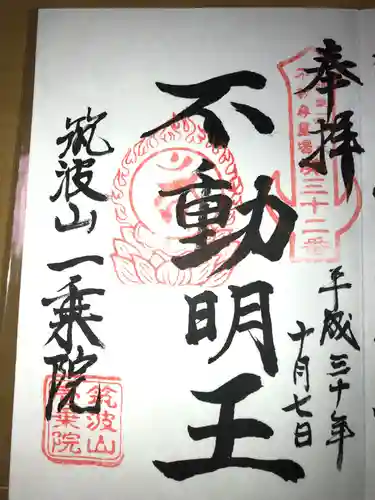 奉拝
平成三十年
十月七日
不動明王
筑波山一乗院
筑波山
一乗院
三十二番